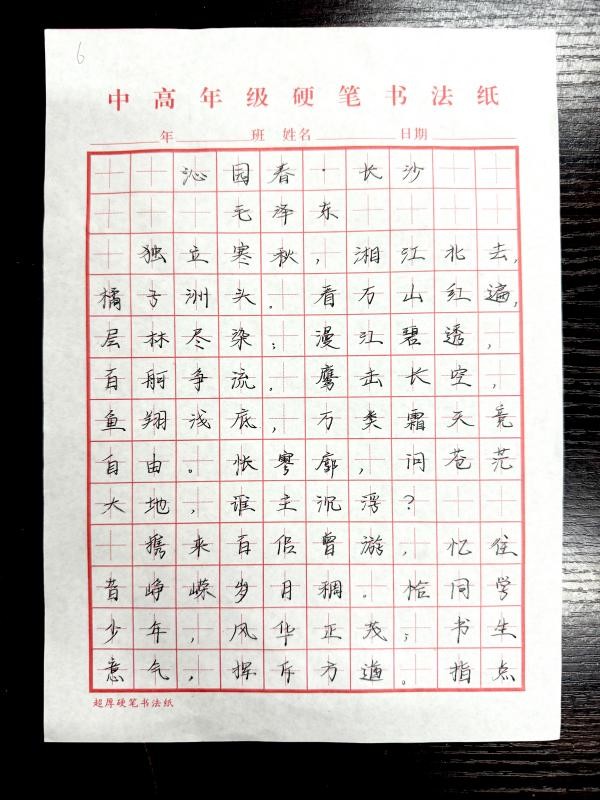 6
中高年级硬笔书法纸
年 班 姓名 日期
沁园春·长沙
毛泽东
独立寒秋，湘江北去，
橘子洲头。看万山红遍，
层林尽染；漫江碧透，
百舸争流。鹰击长空，
鱼翔浅底，万类霜天竞
自由。怅寥廓，问苍茫
大地，谁主沉浮？
携来百侣曾游，忆往
昔峥嵘岁月稠。恰同学
少年，风华正茂；书生
意气，挥斥方遒。指点
超厚硬笔书法纸